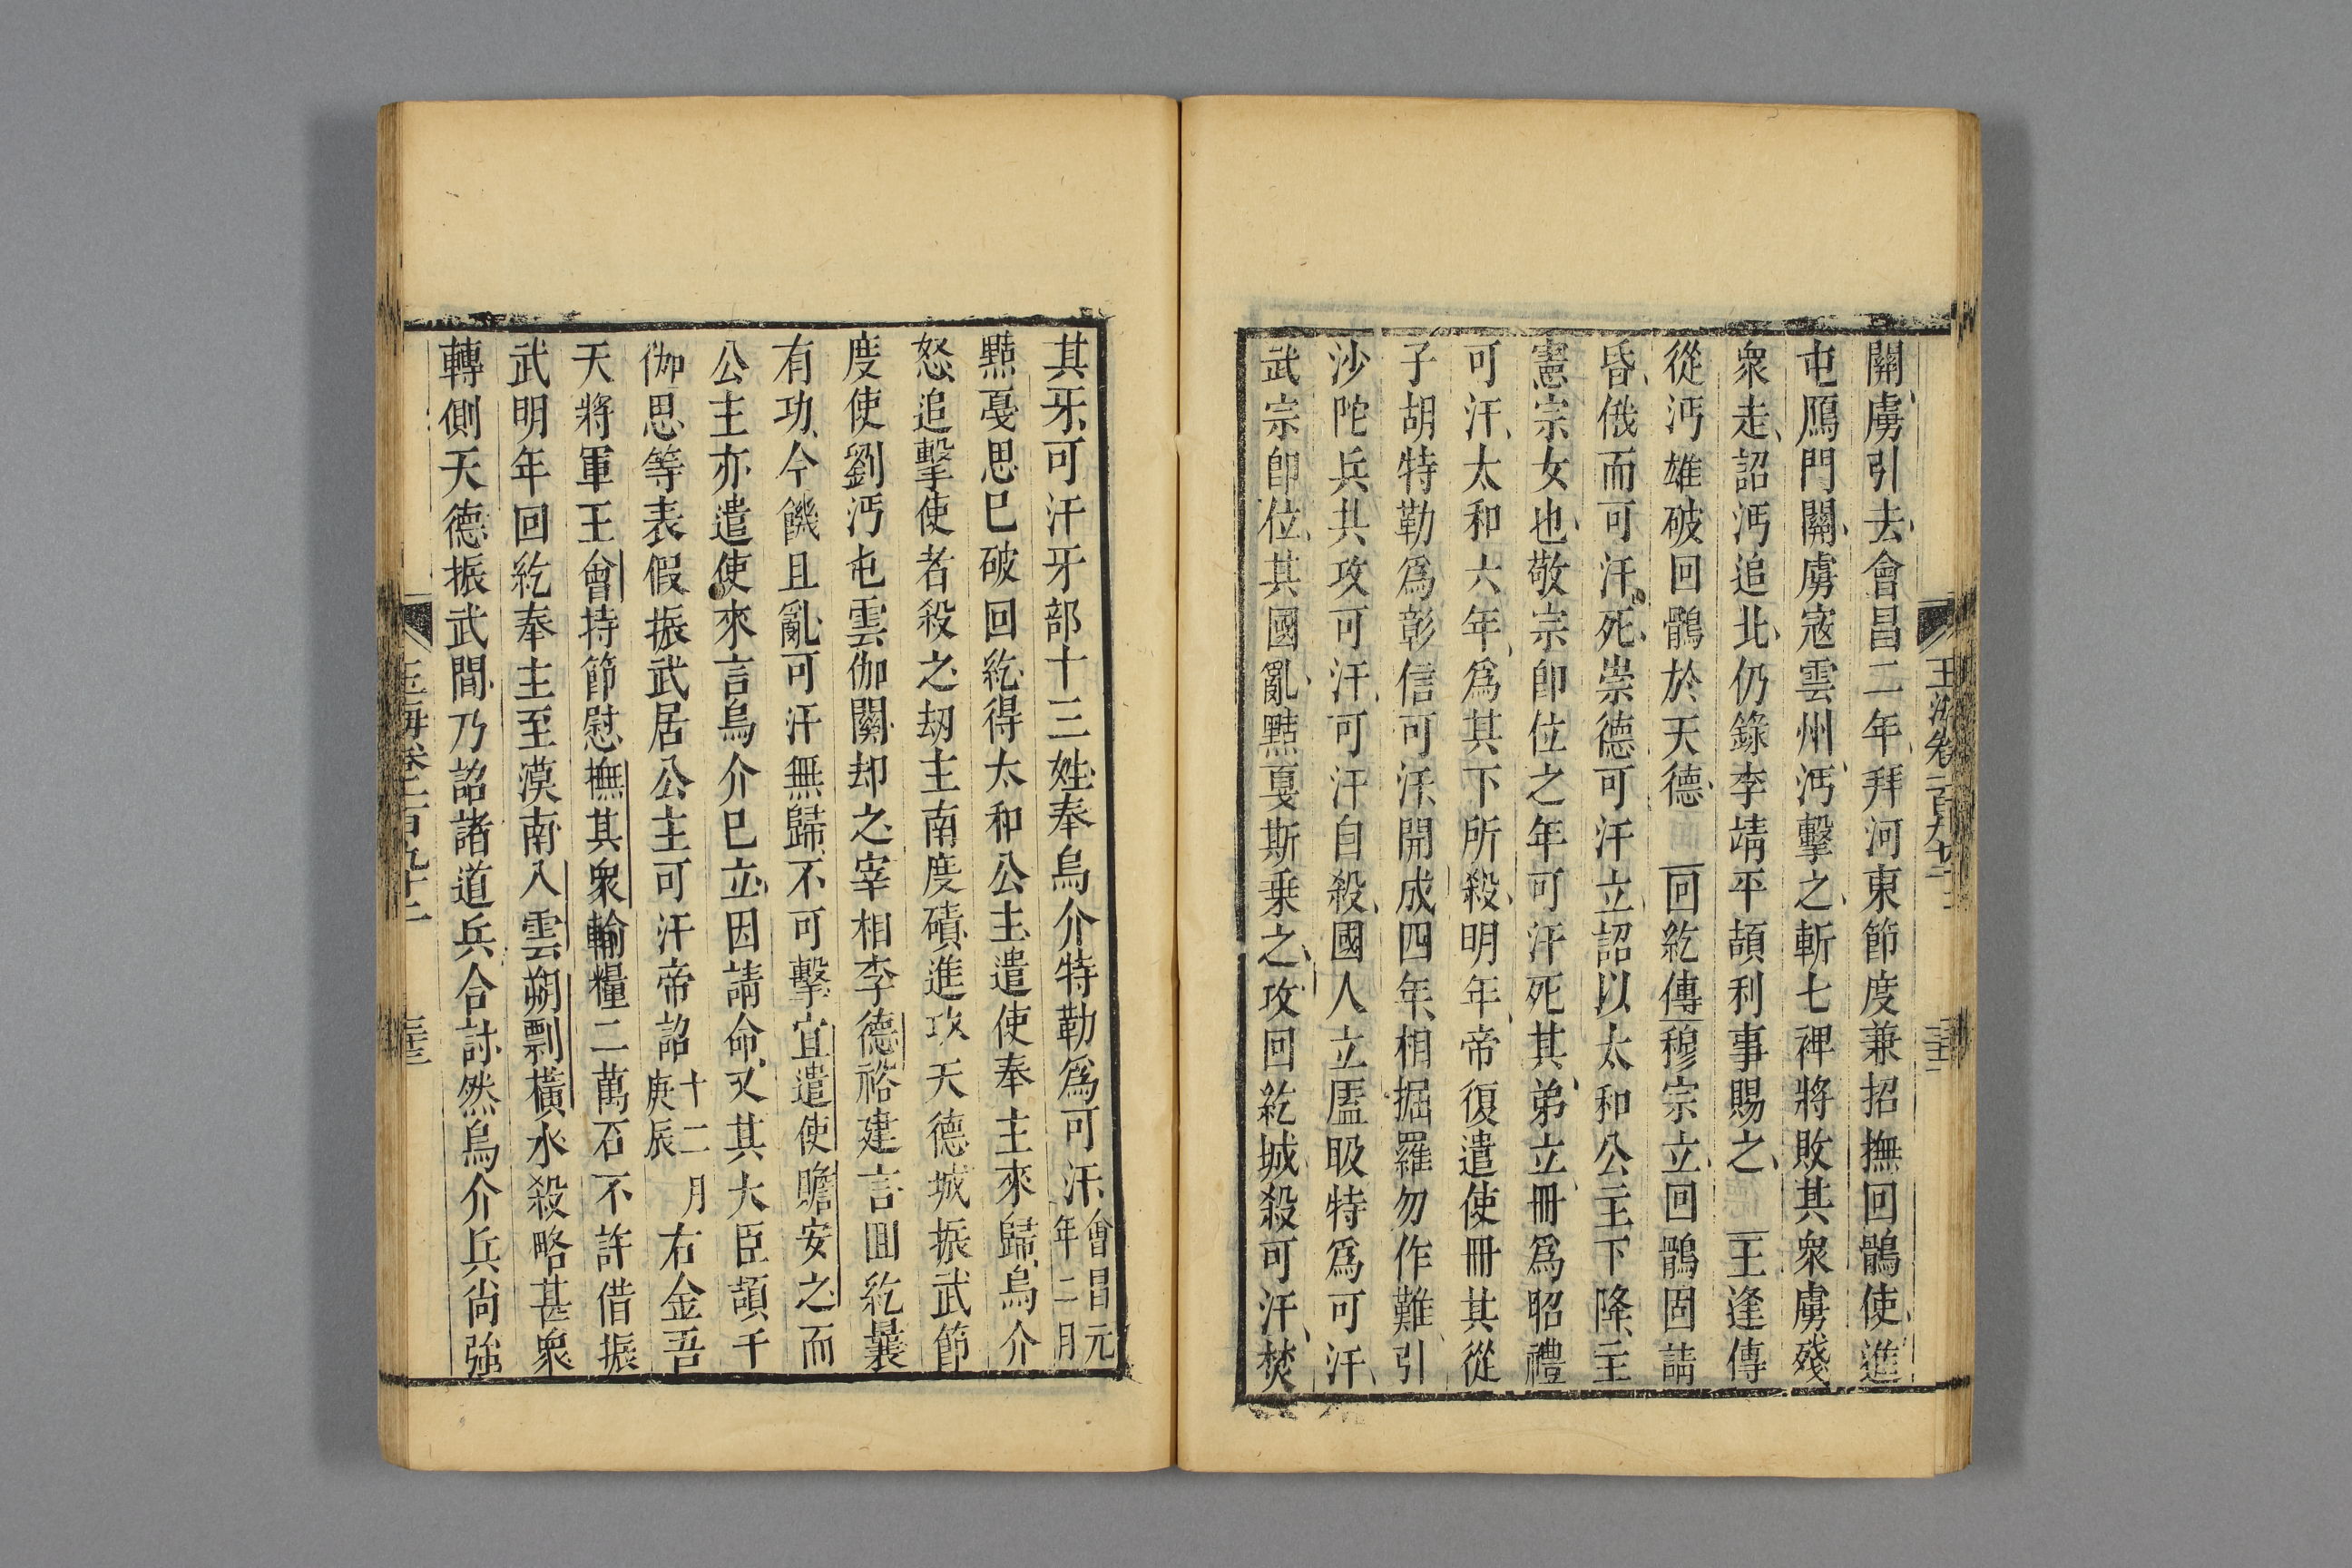 關虜引去會昌二年拜河東節度兼招撫回鶻使進
屯鴈門關虜寇雲州沔擊之斬七裨將敗其衆虜殘
衆走詔沔追北仍錄李靖平頡利事賜之 王逢傳
從沔雄破回鶻於天德 回紇傳穆宗立回鶻固請
昏俄而可汗死崇德可汗立詔以太和公主下降主
憲宗女也敬宗卽位之年可汗死其弟立冊爲昭禮
可汗太和六年爲其下所殺明年帝復遣使冊其從
子胡特勒爲彰信可汗開成四年相掘羅勿作難引
沙陀兵共攻可汗可汗自殺國人立㕎馺特爲可汗
武宗卽位其國亂黠戛斯乗之攻回紇城殺可汗焚
其牙可汗牙部十三姓奉烏介特勒爲可汗會昌元
年二月
黠戛思巳破回紇得太和公主遣使奉主來歸烏介
怒追擊使者殺之刼主南度磧進攻天德城振武節
度使劉沔屯雲伽關却之宰相李德裕建言回紇曩
有功今饑且亂可汗無歸不可擊宜遣使贍安之而
公主亦遣使來言烏介巳立因請命又其大臣頡干
伽思等表假振武居公主可汗帝詔十二月
庚辰右金吾
天將軍王會持節慰撫其衆輸糧二萬石不許借振
武明年回紇奉主至漠南入雲朔剽橫水殺略甚衆
轉側天德振武間乃詔諸道兵合討然烏介兵尚强
玉海卷一百九十一
玉海卷一百九十一